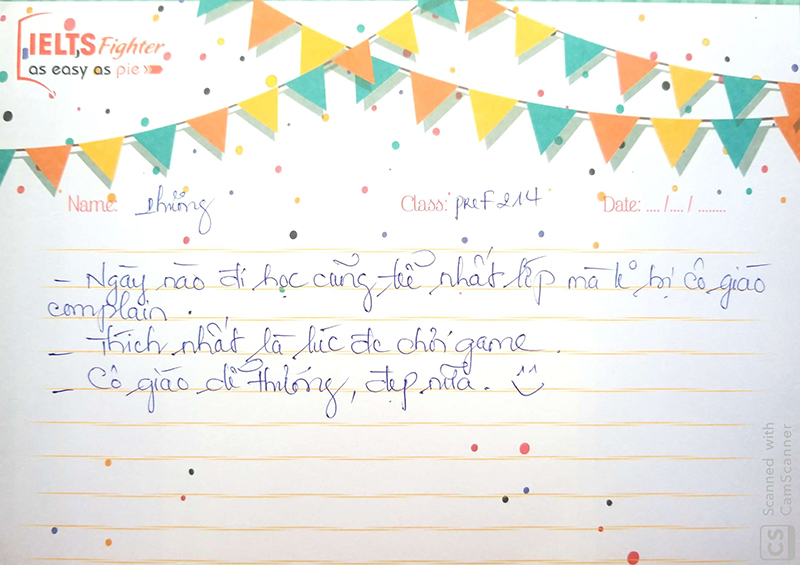 IELTS Fighter
as easy as pie
Name: Phương
Class: pref 214
Date: .... / .... / ........
- Ngày nào đi học cũng trễ nhất lớp mà k bị cô giáo
complain.
- Thích nhất là lúc đc chơi game.
- Cô giáo dễ thương, đẹp nữa.
Scanned with
CamScanner
CS